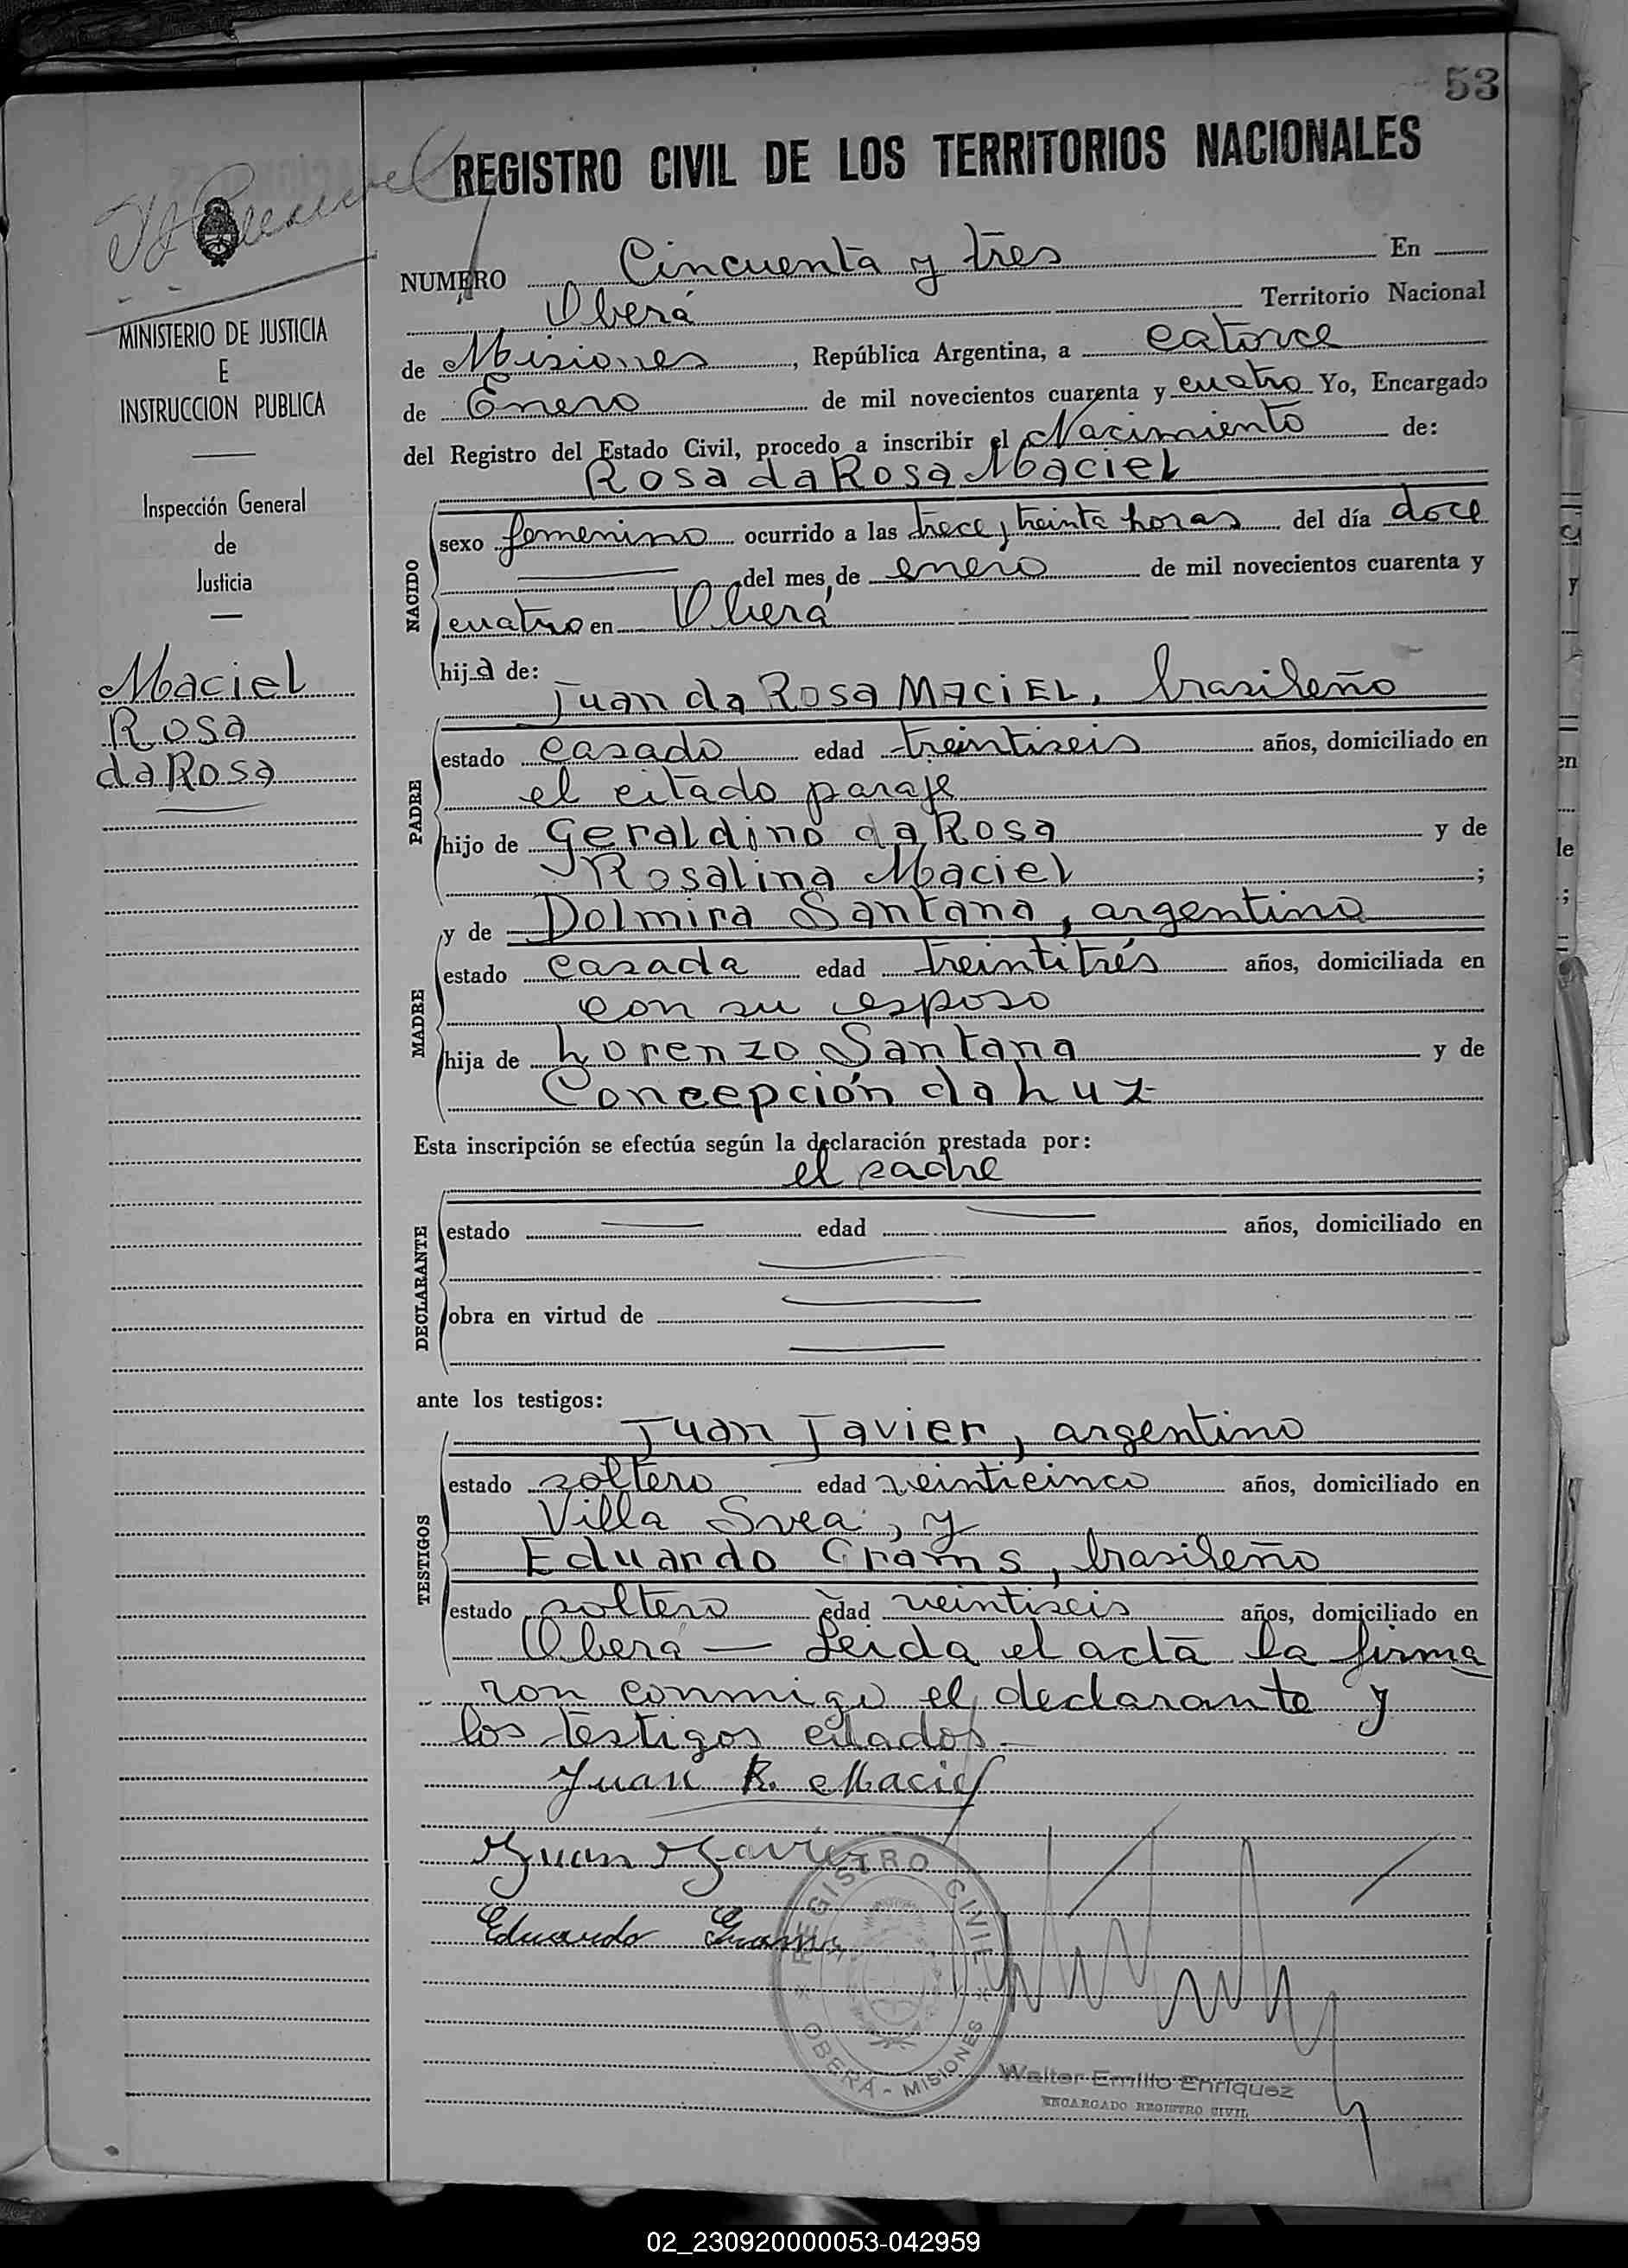 53
REGISTRO CIVIL DE LOS TERRITORIOS NACIONALES
NUMERO Cincuenta y tres En
Oberá Territorio Nacional
de Misiones, República Argentina, a catorce
de Enero de mil novecientos cuarenta y cuatro Yo, Encargado
del Registro del Estado Civil, procedo a inscribir el Nacimiento de:
Rosa da Rosa Maciel
NACIDO
sexo femenino ocurrido a las trece y treinta horas del día doce
del mes de enero de mil novecientos cuarenta y
cuatro en Oberá
hija de:
Juan da Rosa MACIEL, brasileño
PADRE
estado casado edad treintiseis años, domiciliado en
el citado paraje
hijo de Geraldino da Rosa y de
Rosalina Maciel ;
y de Dolmira Santana, argentina
MADRE
estado casada edad treintitrés años, domiciliada en
con su esposo
hija de Lorenzo Santana y de
Concepción da Luz
Esta inscripción se efectúa según la declaración prestada por:
el padre
DECLARANTE
estado edad años, domiciliado en
obra en virtud de
ante los testigos:
Juan Javier, argentino
TESTIGOS
estado soltero edad veinticinco años, domiciliado en
Villa Svea, y
Eduardo Grams, brasileño
estado soltero edad veintiseis años, domiciliado en
Oberá — Leida el acta la firma
ron conmigo el declarante y
los testigos citados.
Juan R. Maciel
Juan Javier
Eduardo Grams
REGISTRO CIVIL
OBERÁ - MISIONES
Walter Emilio Enriquez
ENCARGADO REGISTRO CIVIL
MINISTERIO DE JUSTICIA
E
INSTRUCCION PUBLICA
Inspección General
de
Justicia
Maciel
Rosa
da Rosa
02_230920000053-042959